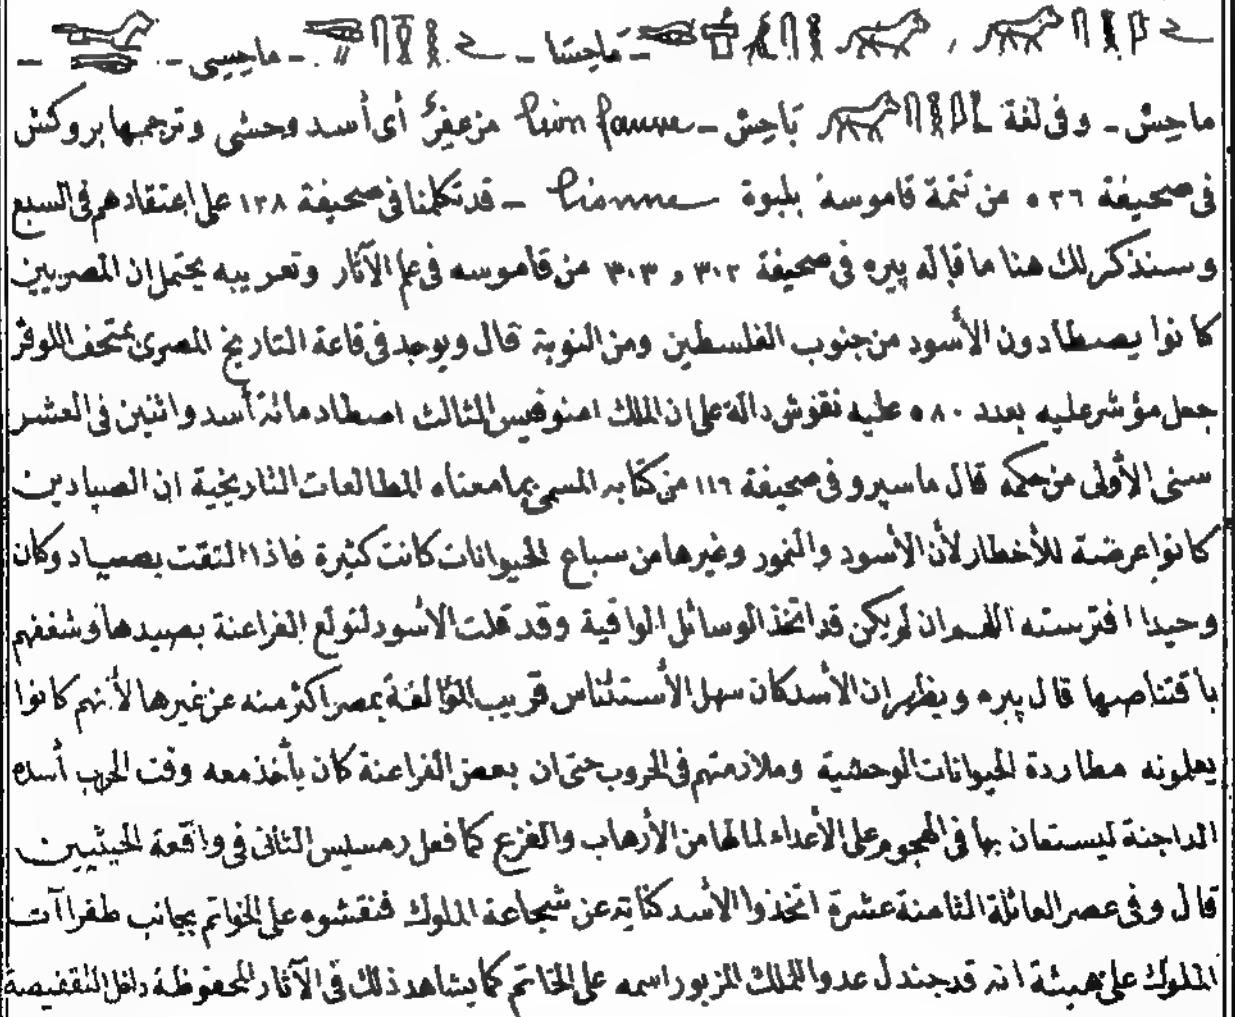 - مَاحِسَا - مَاحِيسِى -
ماحِسْ - وفى لغة بَاحِسْ - lion fauve مزعفرٌ أى أسد وحشى وترجمها بروكش
فى صحيفة ٥٣٦ من تتمة قاموسه بلبوة lionne - قد تكلمنا فى صحيفة ١٣٨ على اعتقادهم فى السبع
وسنذكر لك هنا ما قاله پيره فى صحيفة ٣٠٢ و ٣٠٣ من قاموسه فى علم الآثار وتعريبه يحتمل ان المصريين
كانوا يصطادون الأسود من جنوب الفلسطين ومن النوبة قال ويوجد فى قاعة التاريخ المصرى بمتحف اللوفر
جعل مؤشر عليه بعدد ٥٨٠ عليه نقوش دالة على ان الملك امنوفيس الثالث اصطاد مائة أسد واثنين فى العشر
سنى الأولى من حكمه قال ماسپرو فى صحيفة ١١٦ من كتابه المسمى بما معناه المطالعات التاريخية ان الصيادين
كانوا عرضة للأخطار لأن الأسود والنمور وغيرها من سباع الحيوانات كانت كثيرة فاذا التقت بصياد وكان
وحيدا افترسته اللهم ان لم يكن قد اتخذ الوسائل الواقية وقد قلت الأسود لتولع الفراعنة بصيدها وشغفهم
باقتناصها قال پيره ويظهر ان الأسد كان سهل الأستئناس قريب المؤالفة بمصر اكثر منه عن غيرها لأنهم كانوا
يعلمونه مطاردة الحيوانات الوحشية وملازمتهم فى الحروب حتى ان بعض الفراعنة كان يأخذ معه وقت الحرب أسده
الداجنة ليستعان بها فى الهجوم على الأعداء لما لها من الأرهاب والفزع كما فعل رمسيس الثانى فى واقعة الحيثيين
قال وفى عصر العائلة الثامنة عشرة اتخذوا الأسد كناية عن شجاعة الملوك فنقشوه على الخواتم بجانب طغراآت
الملوك على هيئة انه قد جندل عدوا للملك المزبور اسمه على الخاتم كما يشاهد ذلك فى الآثار المحفوظة داخل التقفيصة